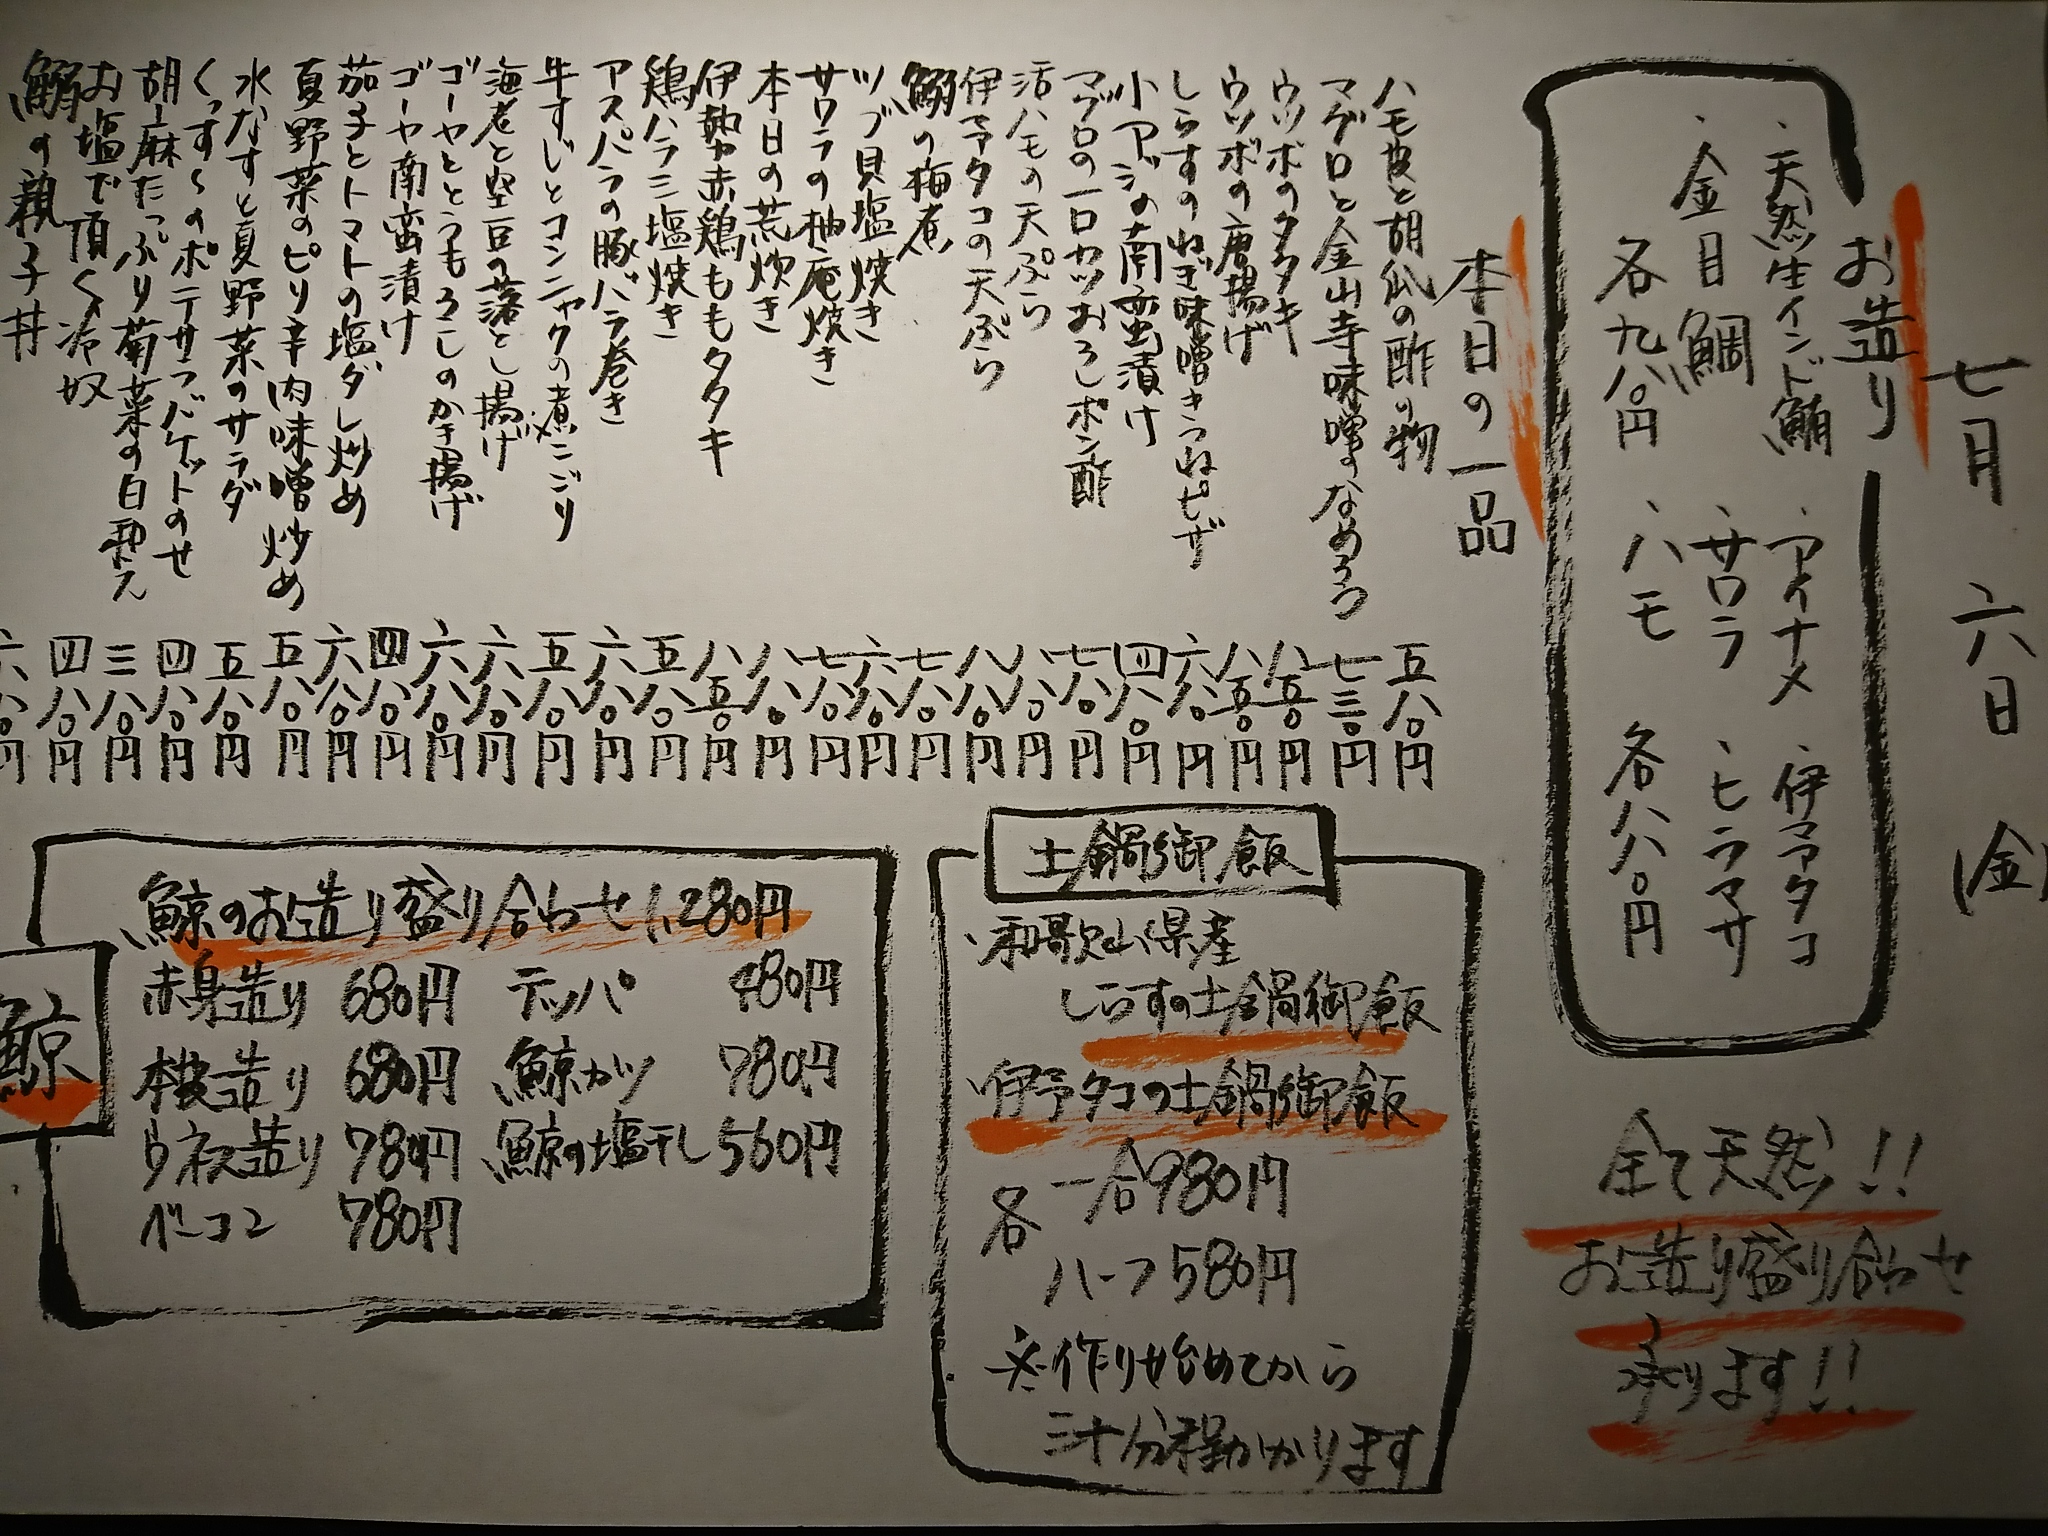 七月六日(金)
お造り
・天然生インド鮪 ・アイナメ ・伊予タコ
・金目鯛 ・サワラ ・ヒラマサ
各九八〇円 ・ハモ 各八八〇円
全て天然!!
お造り盛り合わせ
承ります!!
本日の一品
ハモ皮と胡瓜の酢の物 五八〇円
マグロと金山寺味噌のなめろう 七三〇円
ウツボのタタキ 八五〇円
ウツボの唐揚げ 八五〇円
しらすのねぎ味噌きつねピザ 六八〇円
小アジの南蛮漬け 四八〇円
マグロの一口カツおろしポン酢 七八〇円
活ハモの天ぷら 八八〇円
伊予タコの天ぷら 八八〇円
鰯の梅煮 七八〇円
ツブ貝塩焼き 六八〇円
サワラの柚庵焼き 七八〇円
本日の荒炊き 八八〇円
伊勢赤鶏ももタタキ 八五〇円
鶏ハラミ塩焼き 五八〇円
アスパラの豚バラ巻き 六八〇円
牛すじとコンニャクの煮こごり 五八〇円
海老と空豆の落とし揚げ 六八〇円
ゴーヤととうもろこしのかき揚げ 六八〇円
ゴーヤ南蛮漬け 四八〇円
茄子とトマトの塩ダレ炒め 六八〇円
夏野菜のピリ辛肉味噌炒め 五八〇円
水なすと夏野菜のサラダ 五八〇円
くっすくのポテサラバケットのせ 四八〇円
胡麻たっぷり菊菜の白和え 三八〇円
お塩で頂く冷奴 四八〇円
鰯の親子丼 六八〇円
土鍋御飯
・和歌山県産
しらすの土鍋御飯
・伊予タコの土鍋御飯
各 一合980円
ハーフ580円
※作り始めてから
三十分程かかります
鯨
鯨のお造り盛り合わせ1,280円
赤身造り 680円 テッパ 480円
本皮造り 680円 鯨カツ 780円
ウネス造り 780円 鯨の塩干し 560円
ベーコン 780円